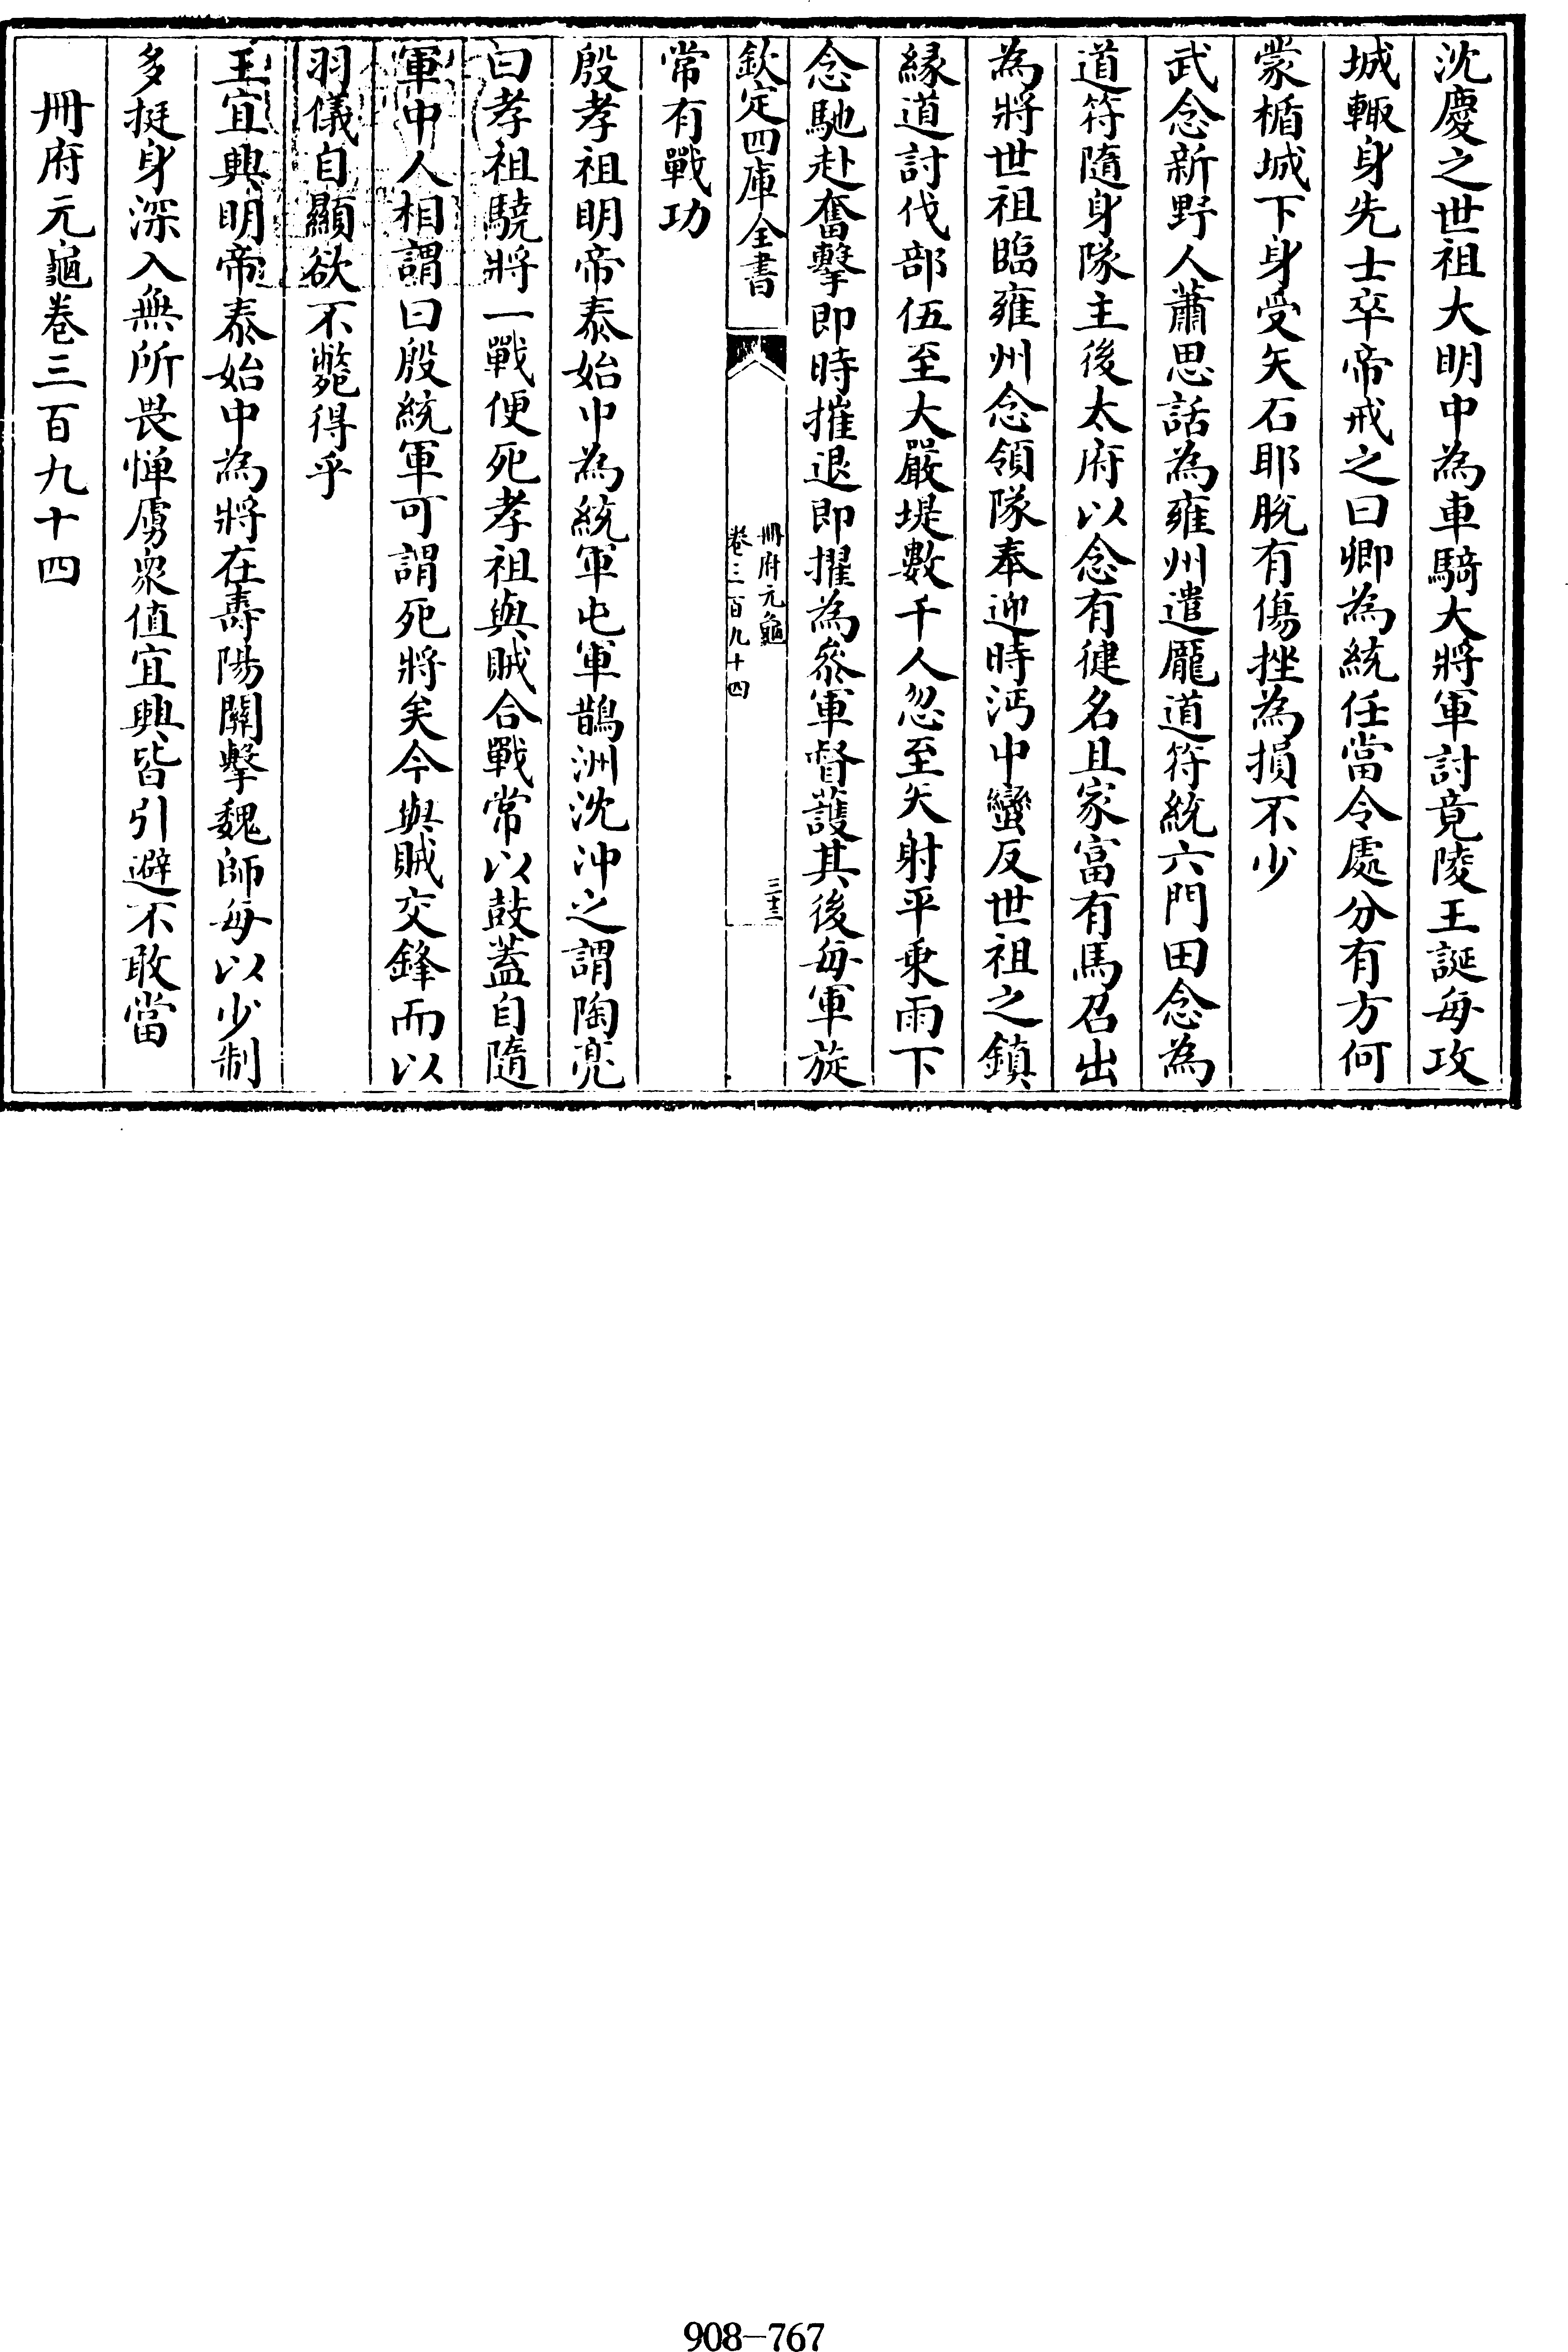 沈慶之世祖大明中為車騎大將軍討竟陵王誕每攻
城輙身先士卒帝戒之曰卿為統任當令處分有方何
蒙楯城下身受矢石耶脫有傷挫為損不少
武念新野人蕭思話為雍州遣龎道符統六門田念為
道符隨身隊主後太府以念有健名且家富有馬召出
為將世祖臨雍州念領隊奉迎時沔中蠻反世祖之鎮
緣道討伐部伍至大嚴堤數千人忽至矢射平乘雨下
念馳赴奮擊即時摧退即擢為參軍督護其後每軍旋
欽定四庫全書
冊府元龜
卷三百九十四
三十三
常有戰功
殷孝祖明帝泰始中為統軍屯軍鵲洲沈沖之謂陶亮
曰孝祖驍將一戰便死孝祖與賊合戰常以鼓蓋自隨
軍中人相謂曰殷統軍可謂死將矣今與賊交鋒而以
羽儀自顯欲不斃得乎
王宜興明帝泰始中為將在壽陽關擊魏師每以少制
多挺身深入無所畏憚虜衆值宜興皆引避不敢當
冊府元龜卷三百九十四
908-767